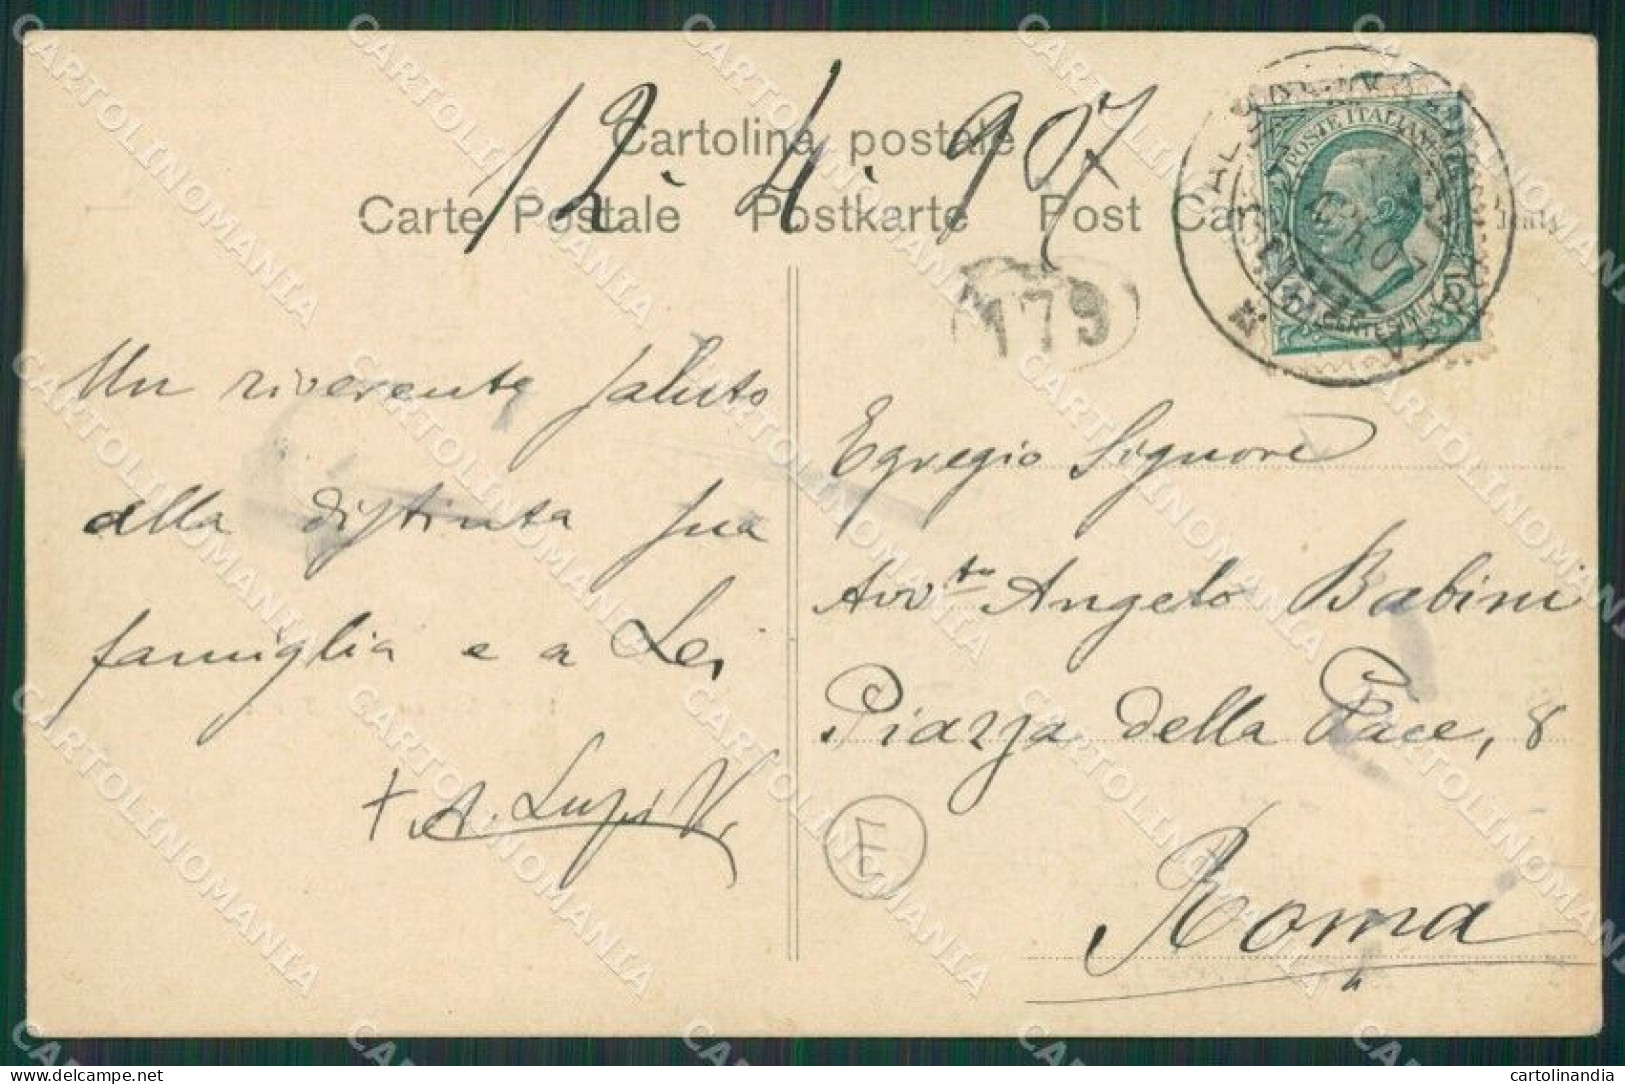 12.4.907
Cartolina postale
Carte Postale Postkarte Post Car
179
POSTE ITALIANE
CENTESIMI
Un riverente saluto
alla distinta sua
famiglia e a Lei
+ A. Lupi V.
Egregio Signore
Avv.to Angelo Babini
Piazza della Pace, 8
E
Roma
CARTOLINOMANIA
delcampe.net
cartolinandia